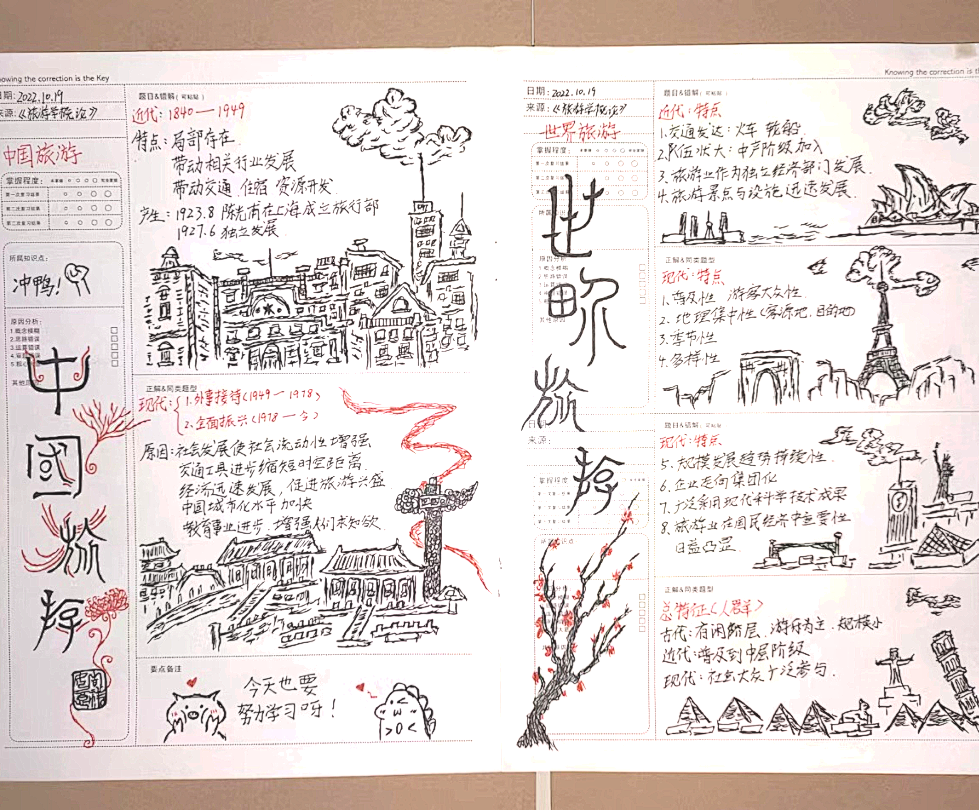 Knowing the correction is the Key
日期: 2022.10.19
来源:《旅游学概论》
中国旅游
掌握程度:
第一次复习结果
第二次复习结果
第三次复习结果
所属知识点:
冲鸭!
原因分析:
1.概念模糊
2.思路错误
3.运算错误
中國旅游
题目&错解(可粘贴)
近代:1840—1949
特点:局部存在.
带动相关行业发展
带动交通 住宿 资源开发
产生:1923.8 陈光甫在上海成立旅行部
1927.6 独立发展.
正解&同类题型
现代:{1.外事接待(1949—1978)
2.全面振兴(1978—今)
原因:社会发展使社会流动性增强
交通工具进步缩短时空距离.
经济迅速发展,促进旅游兴盛
中国城市化水平加快
教育事业进步,增强人们求知欲.
要点备注
今天也要
努力学习呀!
Knowing the correction is th
日期: 2022.10.19
来源:《旅游学概论》
世界旅游
掌握程度:
第一次复习结果
第二次复习结果
第三次复习结果
原因分析
世界旅游
来源:
掌握程度
题目&错解(可粘贴)
近代:特点
1.交通发达:火车 轮船.
2.队伍状大:中产阶级加入
3.旅游业作为独立经济部门发展.
4.旅游景点与设施迅速发展.
正解&同类题型
现代:特点
1.普及性 游客大众性.
2.地理集中性(客源地.目的地)
3.季节性
4.多样性
题目&错解(可粘贴)
现代:特点
5.规模发展趋势持续性.
6.企业走向集团化
7.广泛采用现代科学技术成果
8.旅游业在国民经济中重要性
日益凸显.
正解&同类题型
总特征(人群)
古代:有闲阶层、游行为主、规模小
近代:普及到中层阶级
现代:社会大众广泛参与.